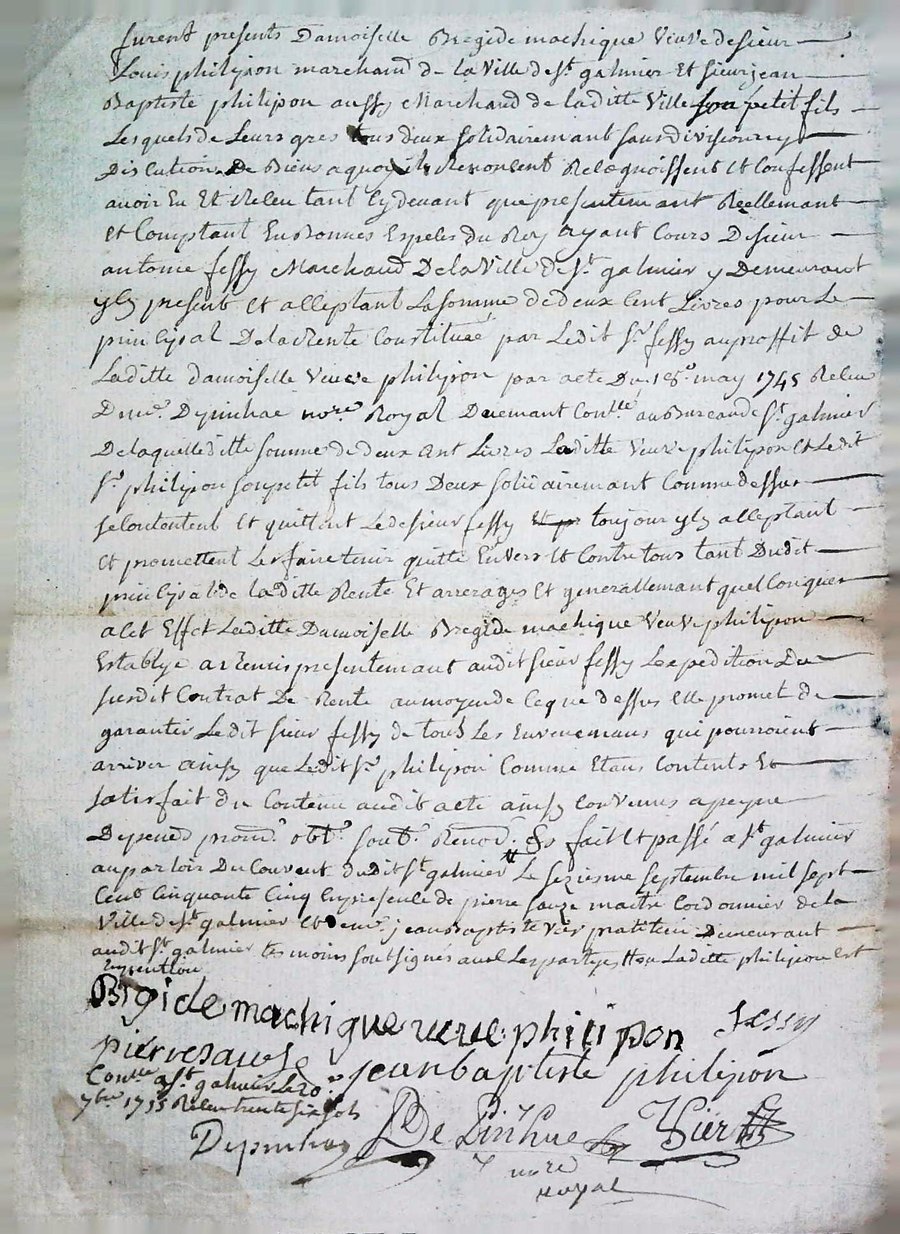 furent presents Damoiselle Bregide machique Veuve de sieur
Louis philipon marchand de la Ville de St galmier Et sieur jean
Baptiste philipon aussy Marchand de laditte Ville son petit fils
Lesquels de Leurs gres tous deux solidairemant sans division ny
Discution De Biens a quoy ils Renoncent Recognoissent et Confessent
avoir Eu Et Receu tant Cydevant que presentemant Reellemant
et Comptant En Bonnes Especes du Roy ayant Cours De sieur
antoine fessy Marchand De la Ville de St galmier y Demeurant
ycy present et acceptant La somme de deux Cent Livres pour Le
principal De la Rente Constituée par Ledit Sr fessy au proffit de
Laditte damoiselle Veuve philipon par acte Du 18e may 1745 Receu
Du me Depinhac nore Royal Duemant Contlé au Bureau de St galmier
De laquelle ditte somme de deux Cent Livres Laditte Veuve philipon et Ledit
Sr philipon son petit fils tous Deux solidairemant Comme dessus
se Contentent et quittent Le de sieur fessy toujour ycy acceptant
et promettent Le faire tenir quitte Envers et Contre tous tant Dudit
principal de laditte Rente Et arrerages et generallemant quelConques
a Cet Effet Laditte Damoiselle Bregide machique Veuve philipon
Establye a Remis presentemant audit sieur fessy Lexpedition Du
susdit Contrat De Rente au moyen de Ce que dessus elle promet de
garantir Ledit sieur fessy de tous Les Evenemans qui pourroient
arriver ainsy que Ledit Sr philipon Comme Etans Contents Et
satisfait du Contenu audit acte ainsy Convenus a peyne
De pened promr oblr soubr Renonr &s fait et passé a St galmier
au parloir Du Couvent dudit St galmier Le seziesme septembre mil sept
Cent Cinquante Cinq En presence de pierre sauze maitre Cordonnier de la
Ville de St galmier et de mr jean Baptiste Vier praticien Demeurant
audit St galmier temoins soussignes avec Les partyes Laditte philipon Est

Bregide machique veuve philipon fessy
pierre sauze jean baptiste philipon
Contlé a St galmier le 20
7bre 1755 Receu trente six sols
Depinhac De Pinhac Vier
nore
Royal